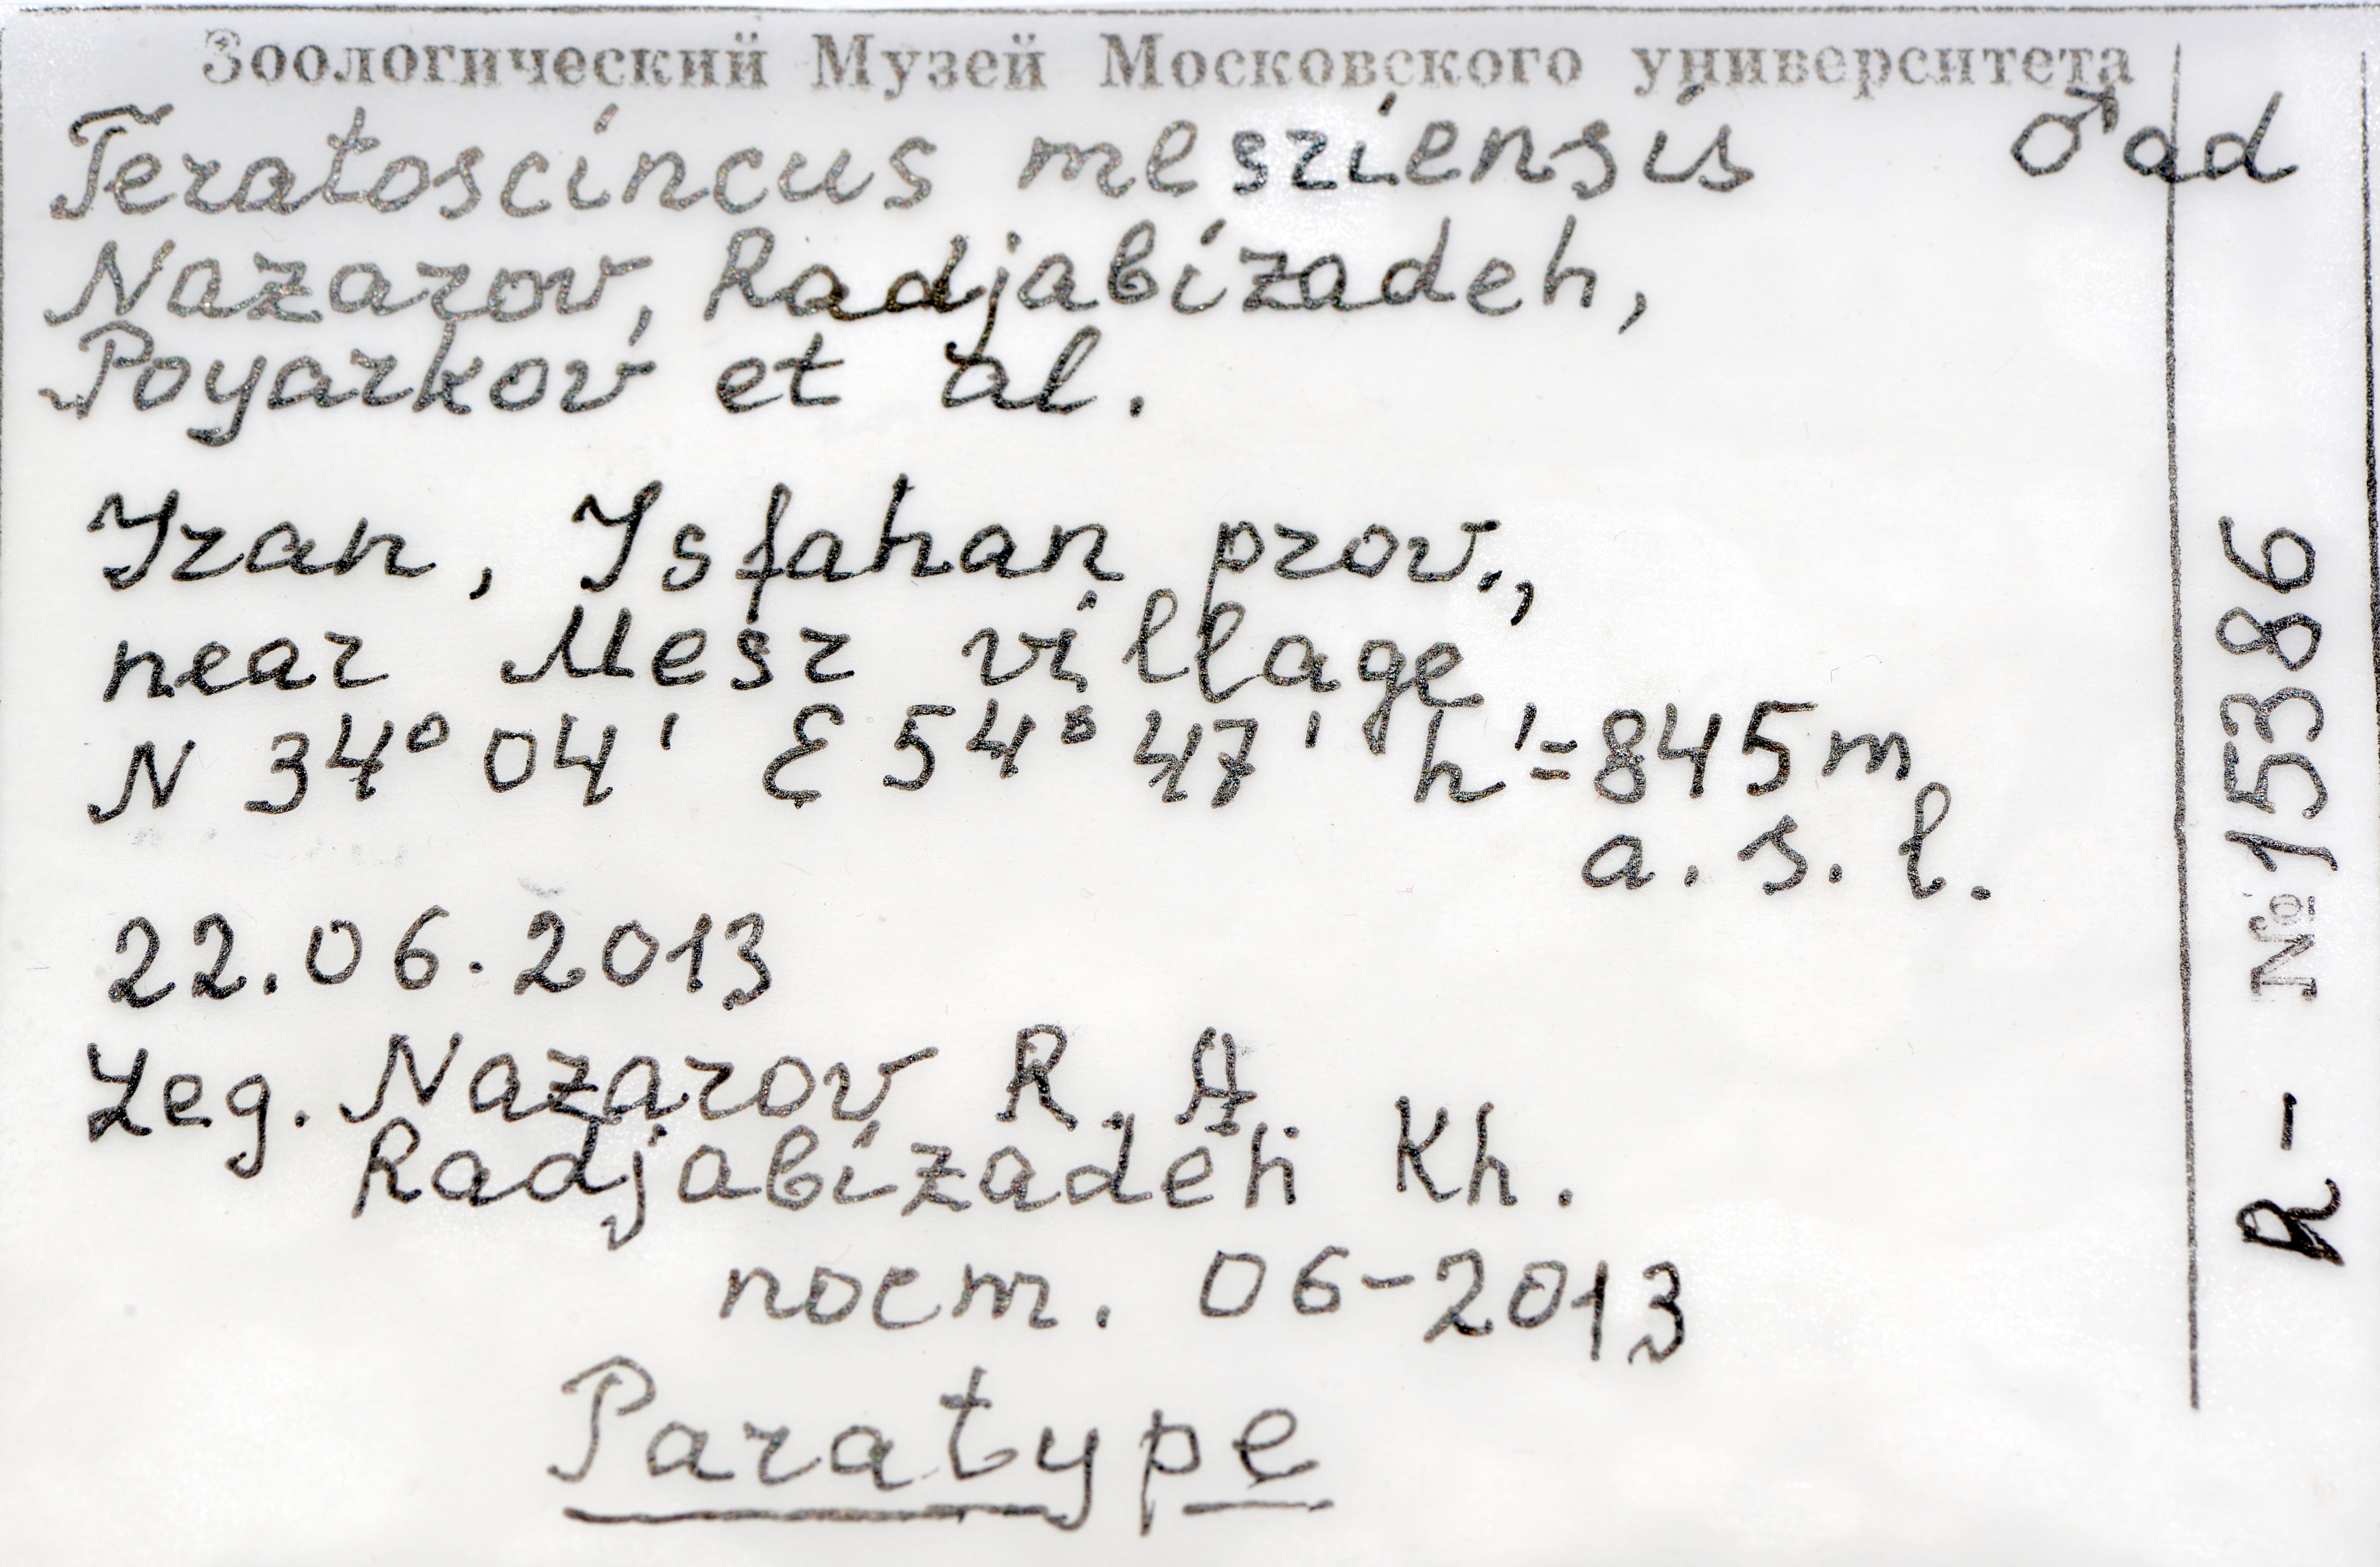 Зоологический Музей Московского университета
Teratoscincus mesriensis ♂ad
Nazarov, Radjabizadeh,
Poyarkov et al.
Iran, Isfahan prov.,
near Mesr village
N 34° 04' E 54° 47' h'=845m
a. s. l.
22.06.2013
Leg. Nazarov R. A.
Radjabizadeh Kh.
пост. 06-2013
Paratype
R- №15386